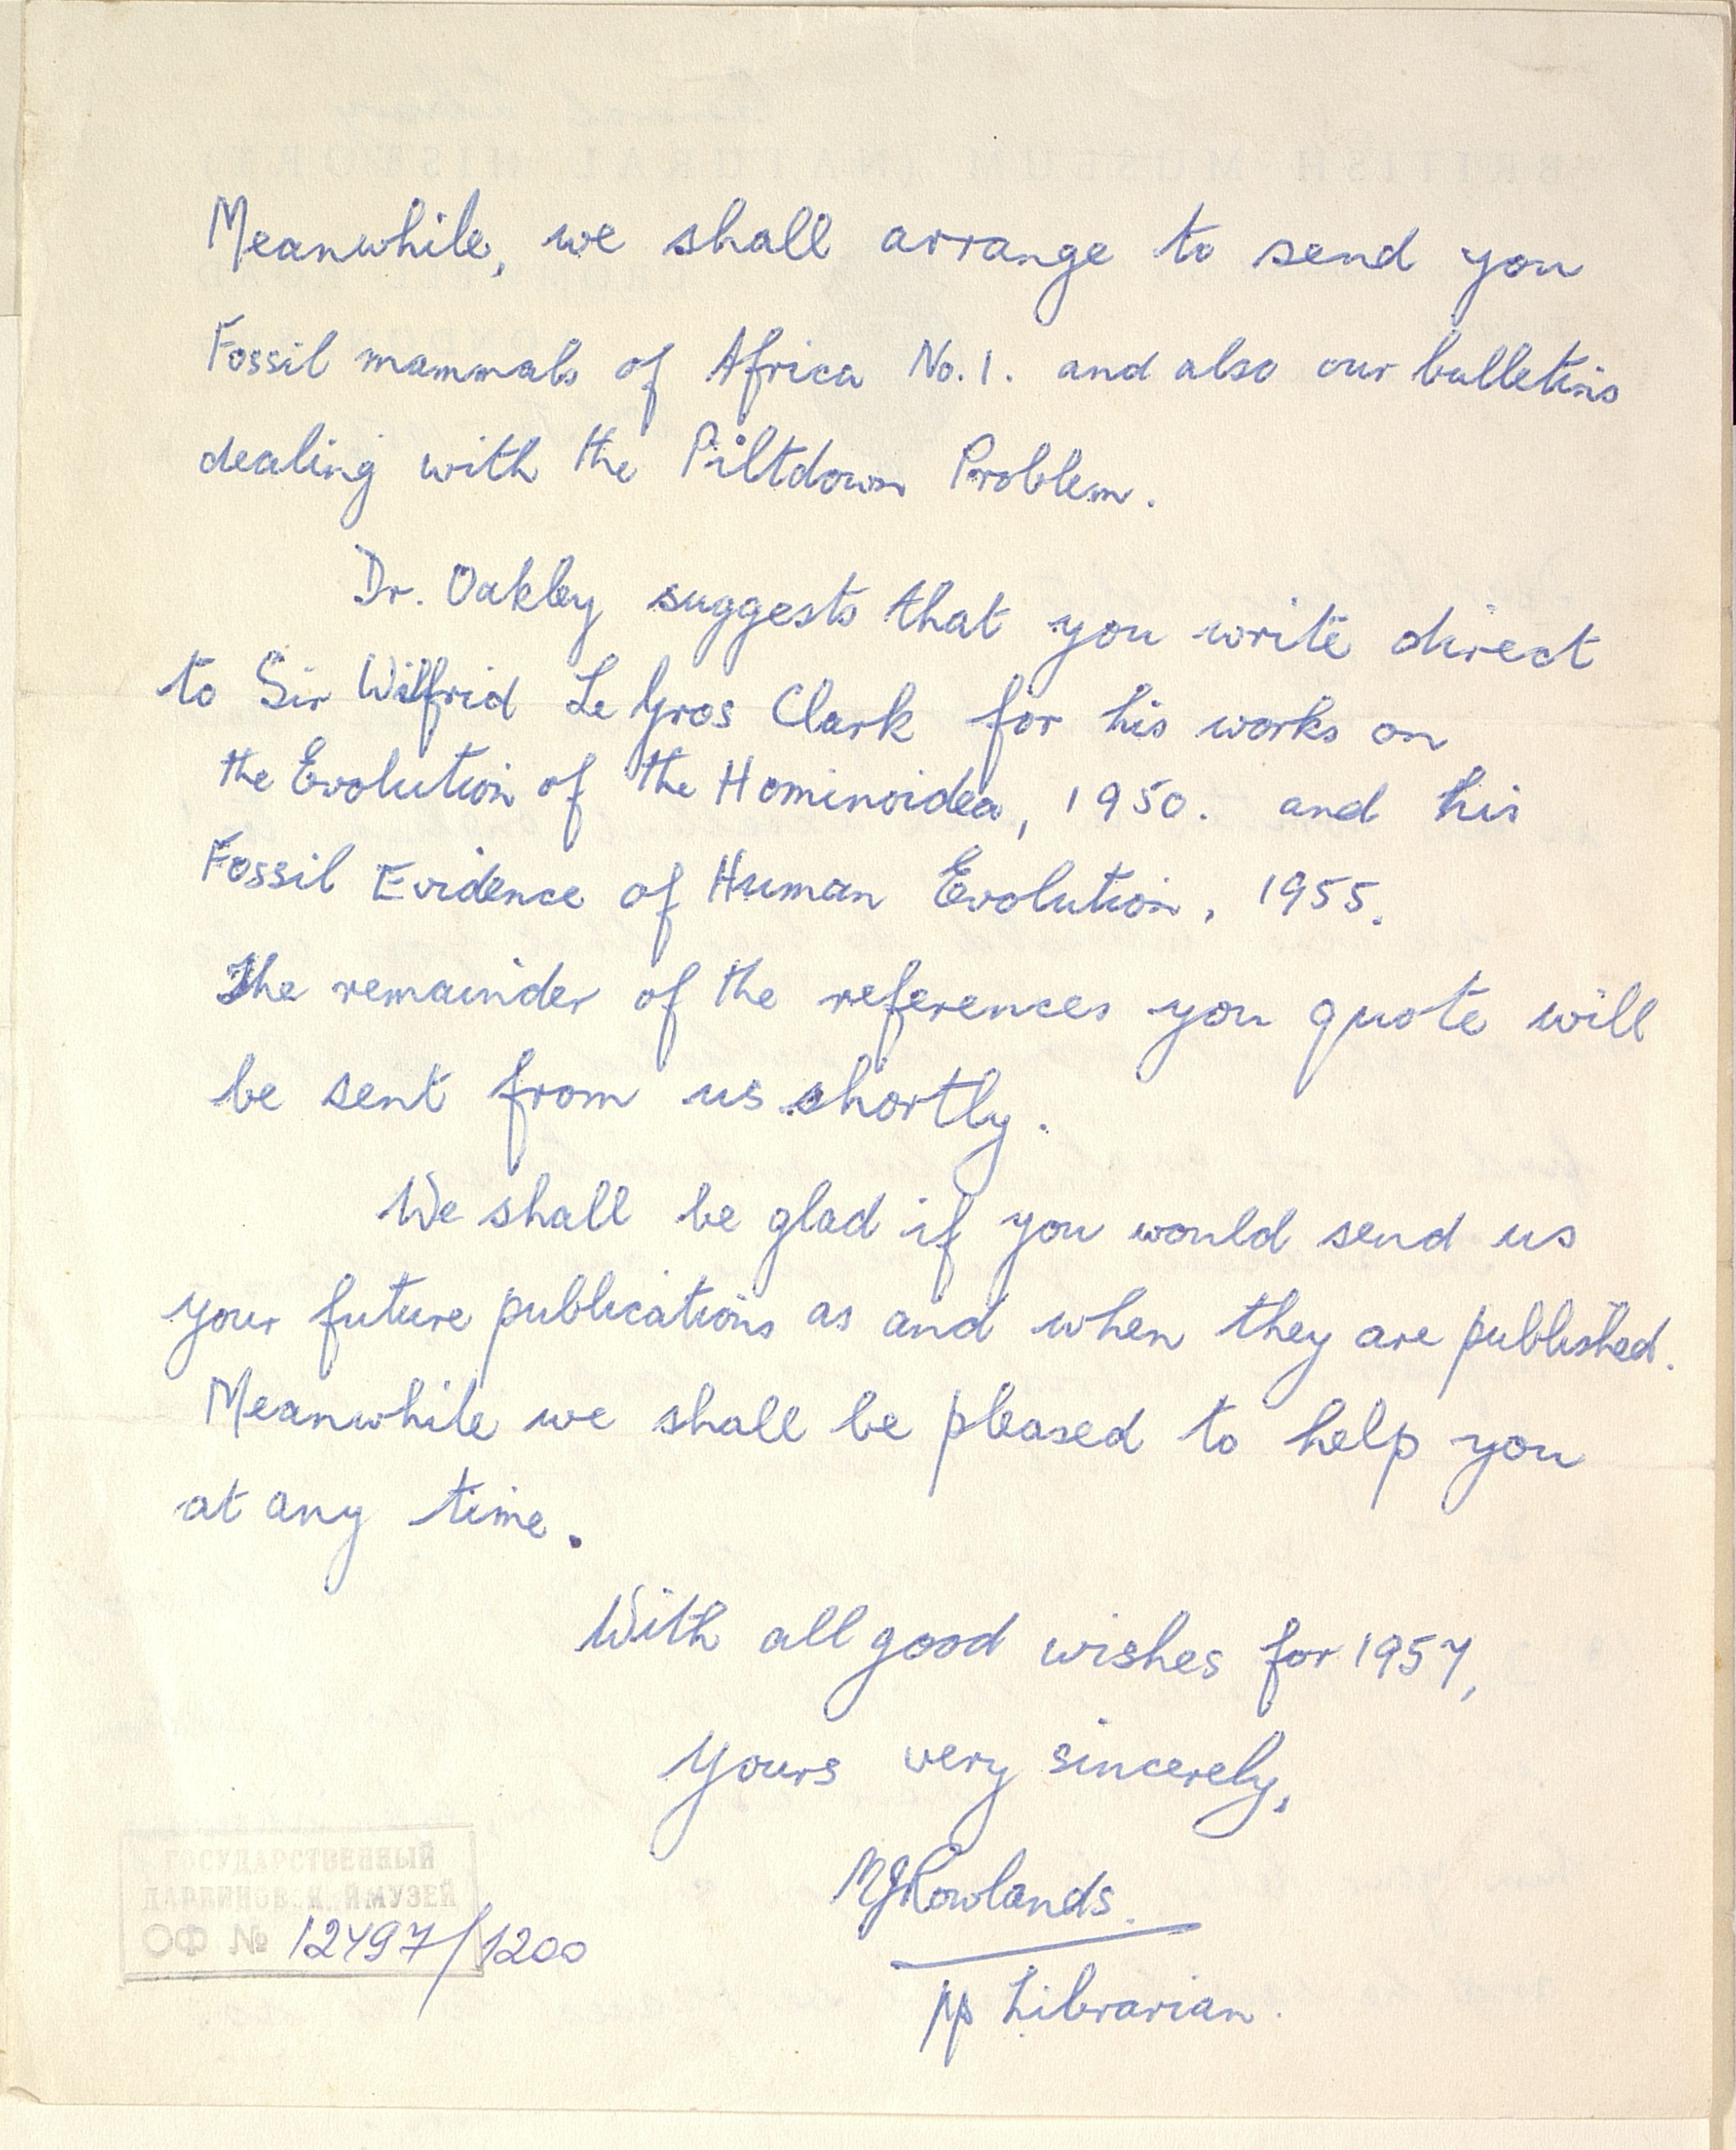 Meanwhile, we shall arrange to send you
Fossil mammals of Africa No. 1. and also our bulletins
dealing with the Piltdown Problem.
Dr. Oakley suggests that you write direct
to Sir Wilfrid Le Gros Clark for his works on
the Evolution of the Hominoidea, 1950. and his
Fossil Evidence of Human Evolution, 1955.
The remainder of the references you quote will
be sent from us shortly.
We shall be glad if you would send us
your future publications as and when they are published.
Meanwhile we shall be pleased to help you
at any time.
With all good wishes for 1957,
Yours very sincerely,
MJRowlands.
pp Librarian.
ГОСУДАРСТВЕННЫЙ
ДАРВИНОВСКИЙ МУЗЕЙ
ОФ № 12497/1200